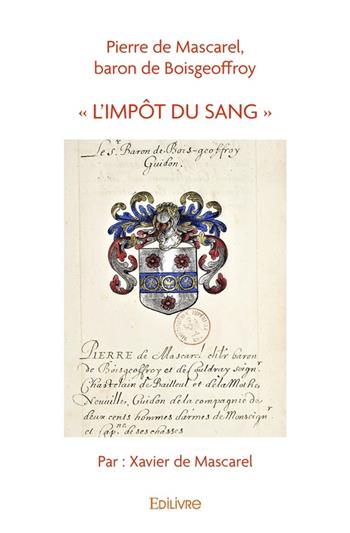 Pierre de Mascarel,
baron de Boisgeoffroy
« L'IMPÔT DU SANG »
Le Sr. Baron de Bois-geoffroy
Guidon.
PIERRE de Mascarel dit le baron
de Boisgeoffroy et de Couldray seignr.
Chastelain de Bailleul et de la Mothe,
Neuville, Guidon de la compagnie de
deux cents hommes d'armes de Monseignr.
et capne. de ses chasses
Par : Xavier de Mascarel
EDILIVRE